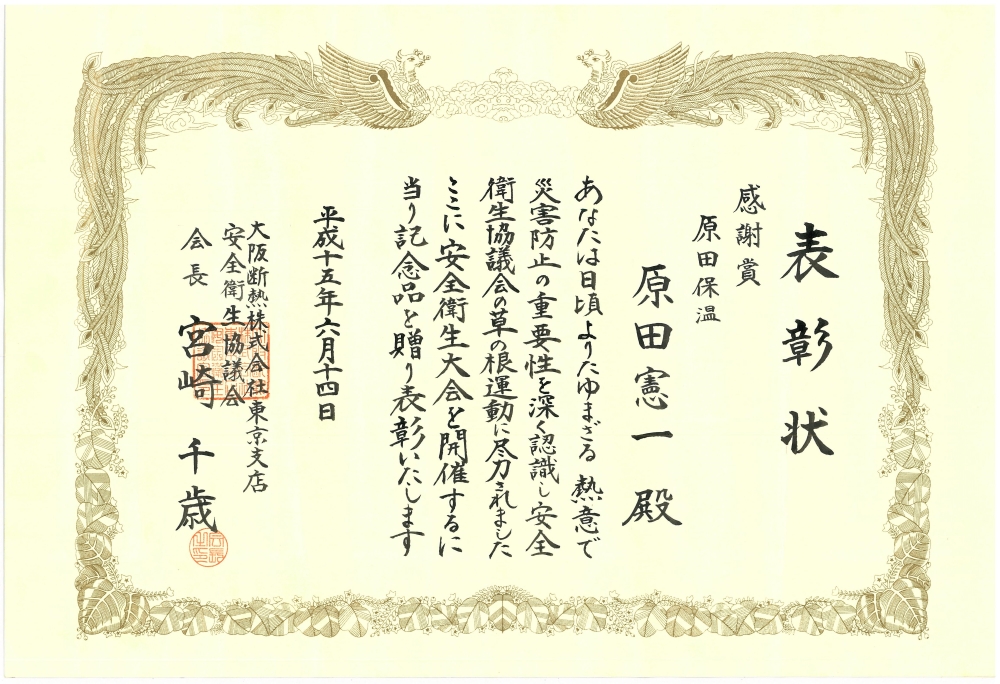 表彰状
感謝賞
原田保温
原田憲一 殿
あなたは日頃よりたゆまざる熱意で
災害防止の重要性を深く認識し安全
衛生協議会の草の根運動に尽力されました
ここに安全衛生大会を開催するに
当り記念品を贈り表彰いたします
平成十五年六月十四日
大阪断熱株式会社東京支店
安全衛生協議会
会長 宮崎千歳